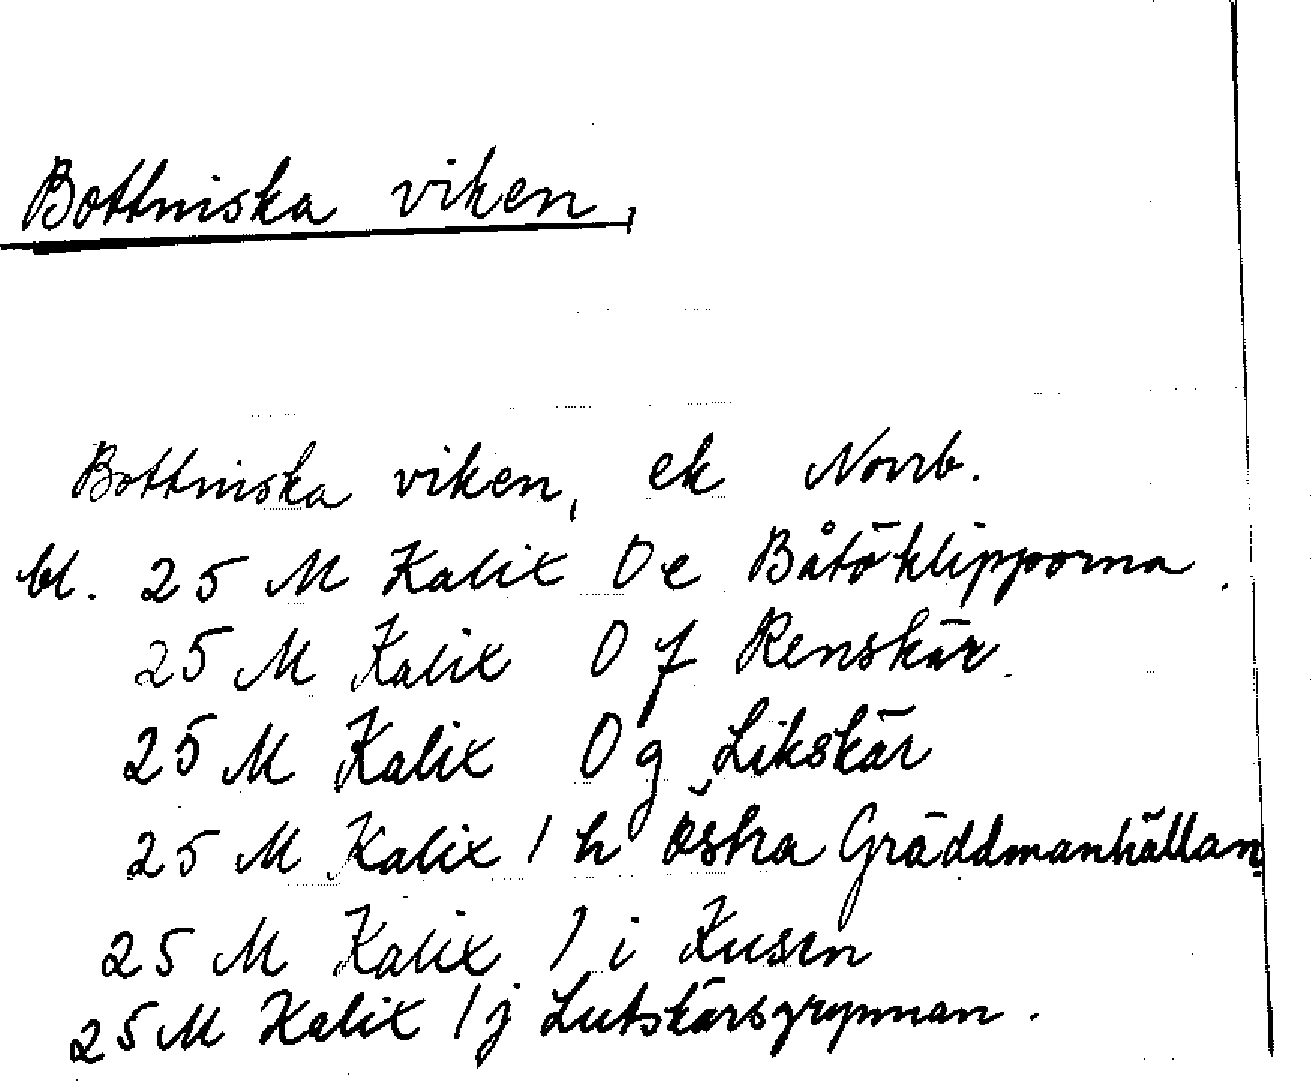 Bottniska viken,
Bottniska viken, ek Norrb.
bl. 25 M Kalix 0 e Båtöklipporna.
25 M Kalix 0 f Renskär.
25 M Kalix 0 g Likskär
25 M Kalix 1 h Östra Gräddmanhällan
25 M Kalix 1 i Kusen
25 M Kalix 1 j Lutskärsgrynnan.